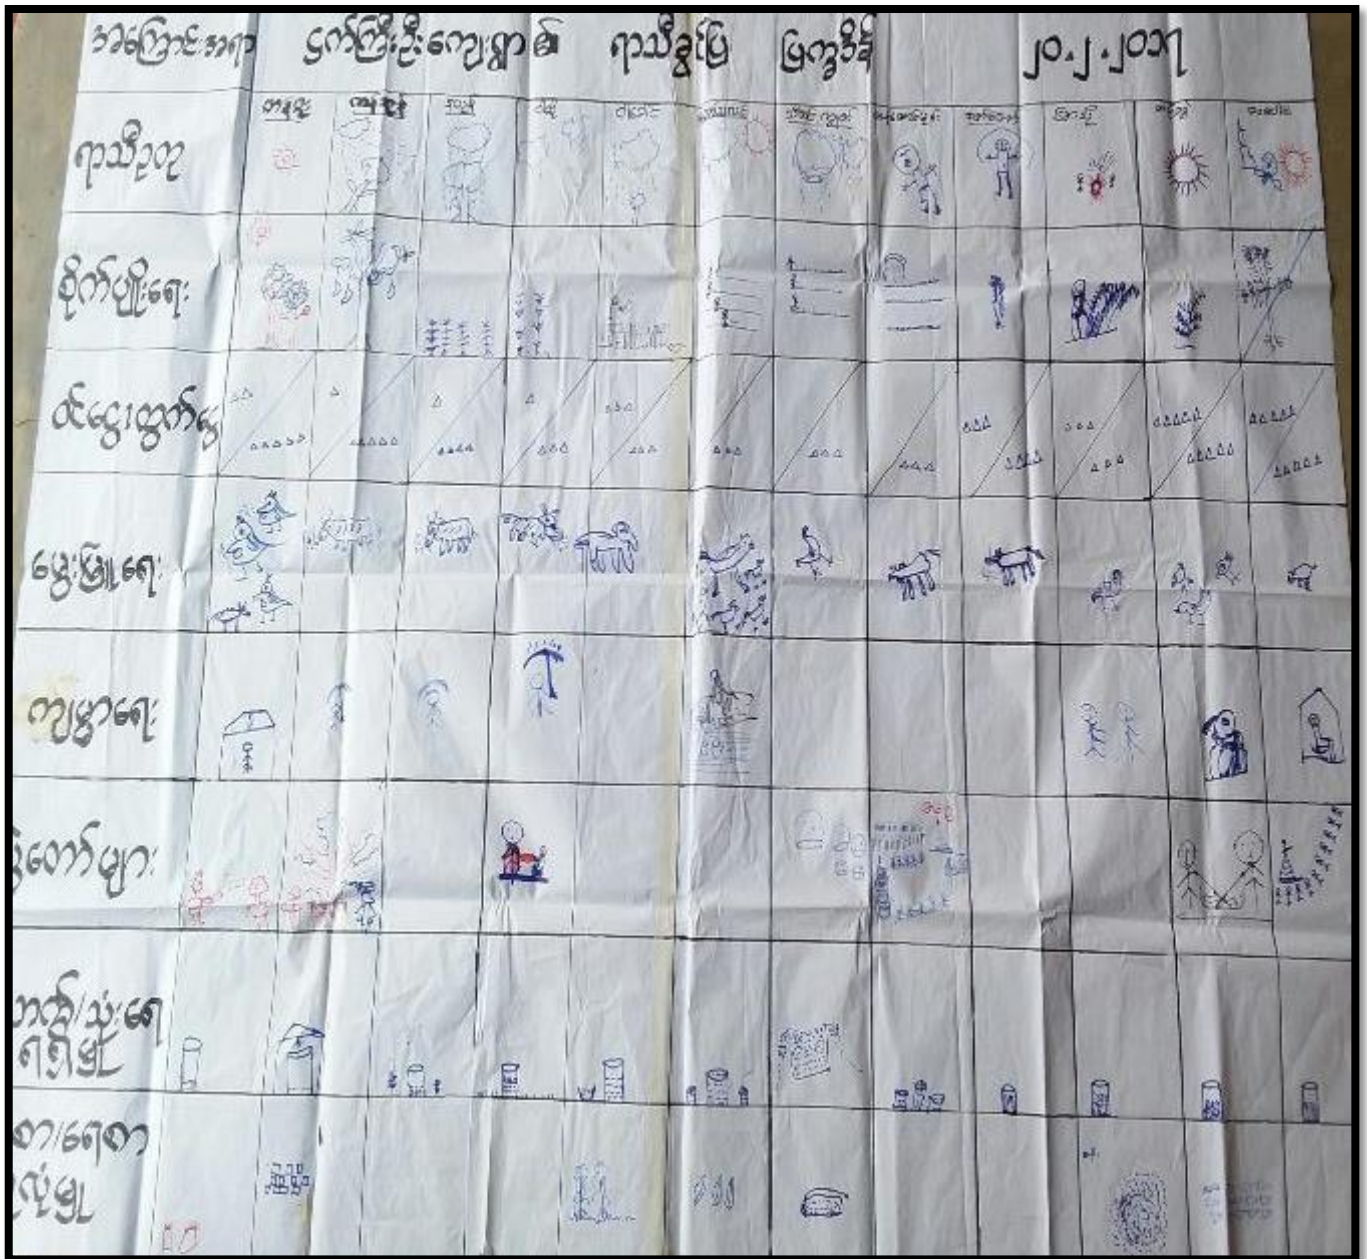 အကြောင်းအရာ ငှက်ကြီးဦးကျေးရွာ၏ ရာသီခွင်ပြ ပြက္ခဒိန် ၂၀.၂.၂၀၁၇
တန်ခူး ကဆုန် နယုန် ဝါဆို ဝါခေါင် တော်သလင်း သီတင်းကျွတ် တန်ဆောင်မုန်း နတ်တော် ပြာသို တပို့တွဲ တပေါင်း
ရာသီဥတု
စိုက်ပျိုးရေး
ဝင်ငွေ၊ထွက်ငွေ
မွေးမြူရေး
ကျန်းမာရေး
ပွဲတော်များ
သောက်/သုံးရေ
ရရှိမှု